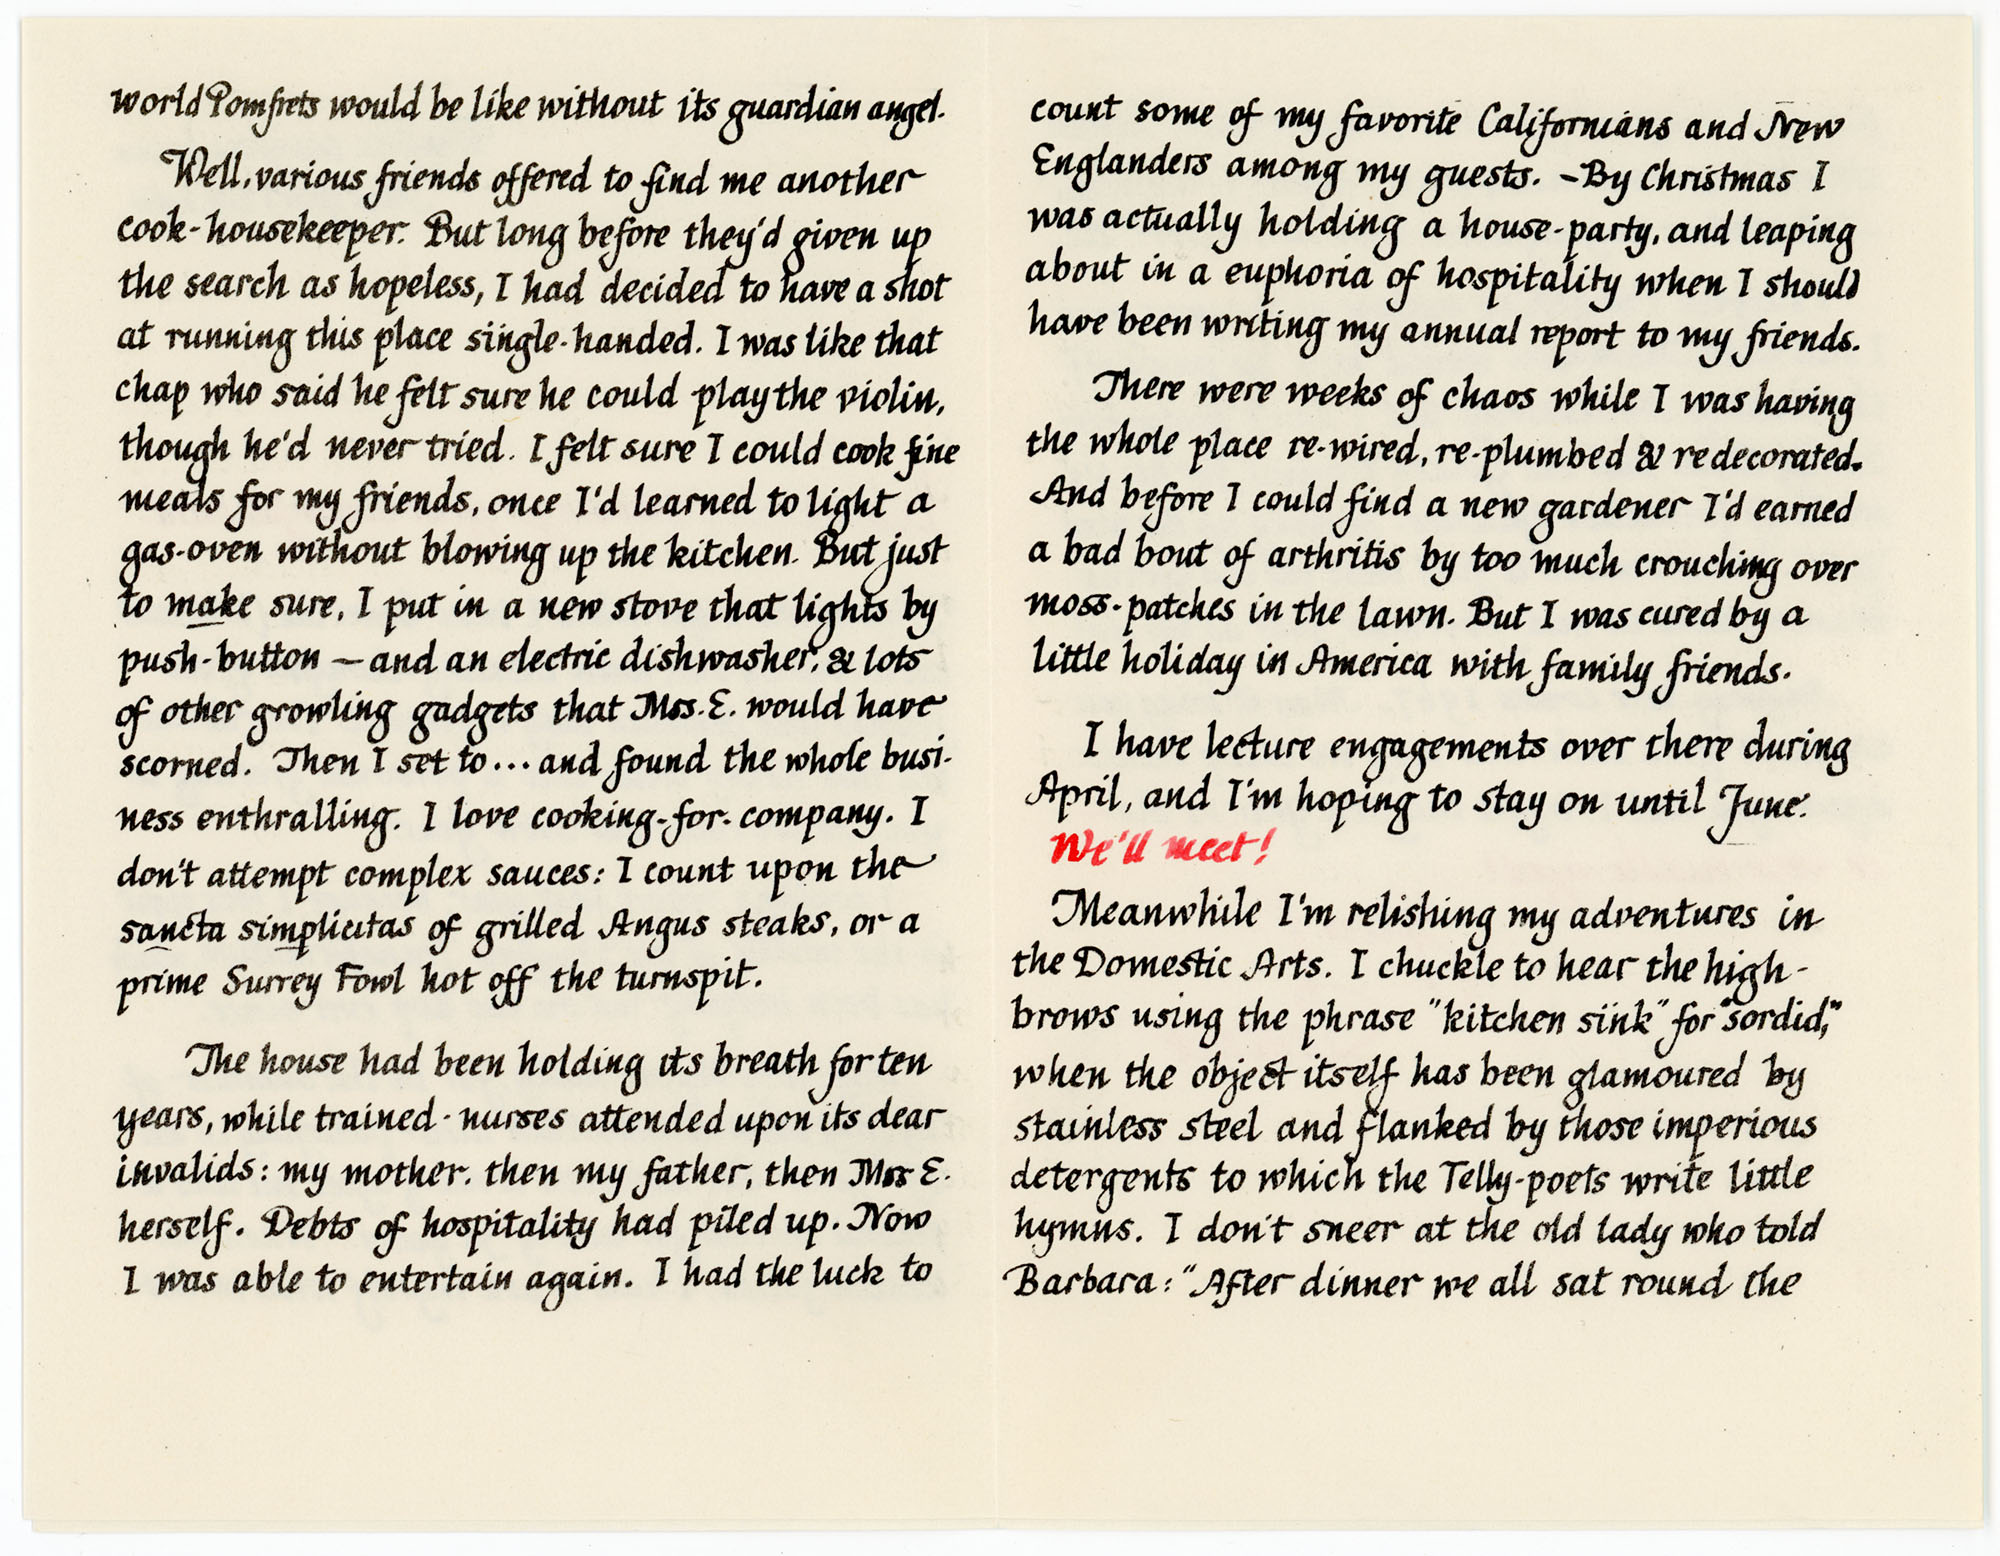 world Pomfrets would be like without its guardian angel.
Well, various friends offered to find me another
cook-housekeeper. But long before they'd given up
the search as hopeless, I had decided to have a shot
at running this place single-handed. I was like that
chap who said he felt sure he could play the violin,
though he'd never tried. I felt sure I could cook fine
meals for my friends, once I'd learned to light a
gas-oven without blowing up the kitchen. But just
to make sure, I put in a new stove that lights by
push-button — and an electric dishwasher, & lots
of other growling gadgets that Mrs. E. would have
scorned. Then I set to... and found the whole busi-
ness enthralling. I love cooking-for-company. I
don't attempt complex sauces: I count upon the
sancta simplicitas of grilled Angus steaks, or a
prime Surrey Fowl hot off the turnspit.
The house had been holding its breath for ten
years, while trained-nurses attended upon its dear
invalids: my mother, then my father, then Mrs E.
herself. Debts of hospitality had piled up. Now
I was able to entertain again. I had the luck to
count some of my favorite Californians and New
Englanders among my guests. – By Christmas I
was actually holding a house-party, and leaping
about in a euphoria of hospitality when I should
have been writing my annual report to my friends.
There were weeks of chaos while I was having
the whole place re-wired, re-plumbed & redecorated.
And before I could find a new gardener I'd earned
a bad bout of arthritis by too much crouching over
moss-patches in the lawn. But I was cured by a
little holiday in America with family friends.
I have lecture engagements over there during
April, and I'm hoping to stay on until June.
We'll meet!
Meanwhile I'm relishing my adventures in
the Domestic Arts. I chuckle to hear the high-
brows using the phrase "kitchen sink" for "sordid,"
when the object itself has been glamoured by
stainless steel and flanked by those imperious
detergents to which the Telly-poets write little
hymns. I don't sneer at the old lady who told
Barbara: "After dinner we all sat round the